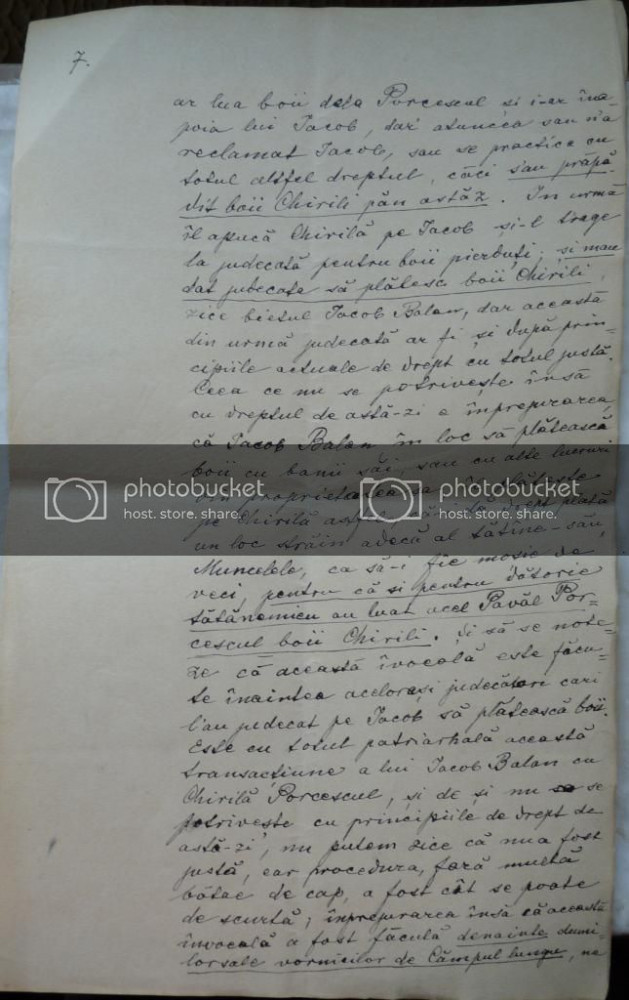 7.
ar lua boii dela Porcescul și i-ar îna-
poia lui Iacob, dar atuncea sau n'a
reclamat Iacob, sau se practica cu
totul altfel dreptul, căci s'au prăpă-
dit boii Chirili păn astăz. In urmă
îl apucă Chirilă pe Iacob și-l trage
la judecată pentru boii pierduți; și mau
dat judecata să plătesc boii Chirili,
zice bietul Iacob Balan, dar această
din urmă judecată ar fi și după prin-
cipiile actuale de drept cu totul justă.
Ceea ce nu se potrivește însă
cu dreptul de astă-zi e împrejurarea,
că Iacob Balan în loc să plătească
boii cu banii săi, sau cu alte lucruri
din proprietatea sa
photobucket
host. store. share.
photobucket
host. store. share.
pe Chirilă astfel, drept plată
un loc străin adecă al tătâne-său,
Muncelele, ca să-i fie moșie de
veci, pentru că și pentru dătorie
tătănemieu au luat acel Pavăl Por-
cescul boii Chirili. Și să se note-
ze că această învoeală este făcu-
te înaintea acelorași judecători cari
l'au judecat pe Iacob să plătească boii.
Este cu totul patriarhală această
transacțiune a lui Iacob Balan cu
Chirilă Porcescul, și de și nu se
potrivește cu principiile de drept de
astă-zi, nu putem zice că nu a fost
justă, ear procedura, fară multă
bătae de cap, a fost cât se poate
de scurtă; împrejurarea însă că această
învoeală a fost făcută denainte dumi-
lorsale vornicilor de Câmpul lungu, ne